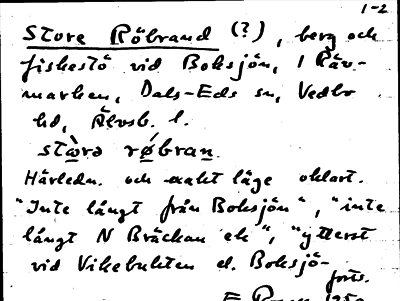 1-2
Store Röbrand (?), berg och
fiskestö vid Boksjön, i Räv-
marken, Dals-Eds sn, Vedbo
hd, Älvsb. l.
stòrə rǿbran
Härledn. och exakt läge oklart.
"Inte långt från Boksjön", "inte
långt N Bräckan ek", "ytterst
vid Vikebukten el. Boksjö-
forts.